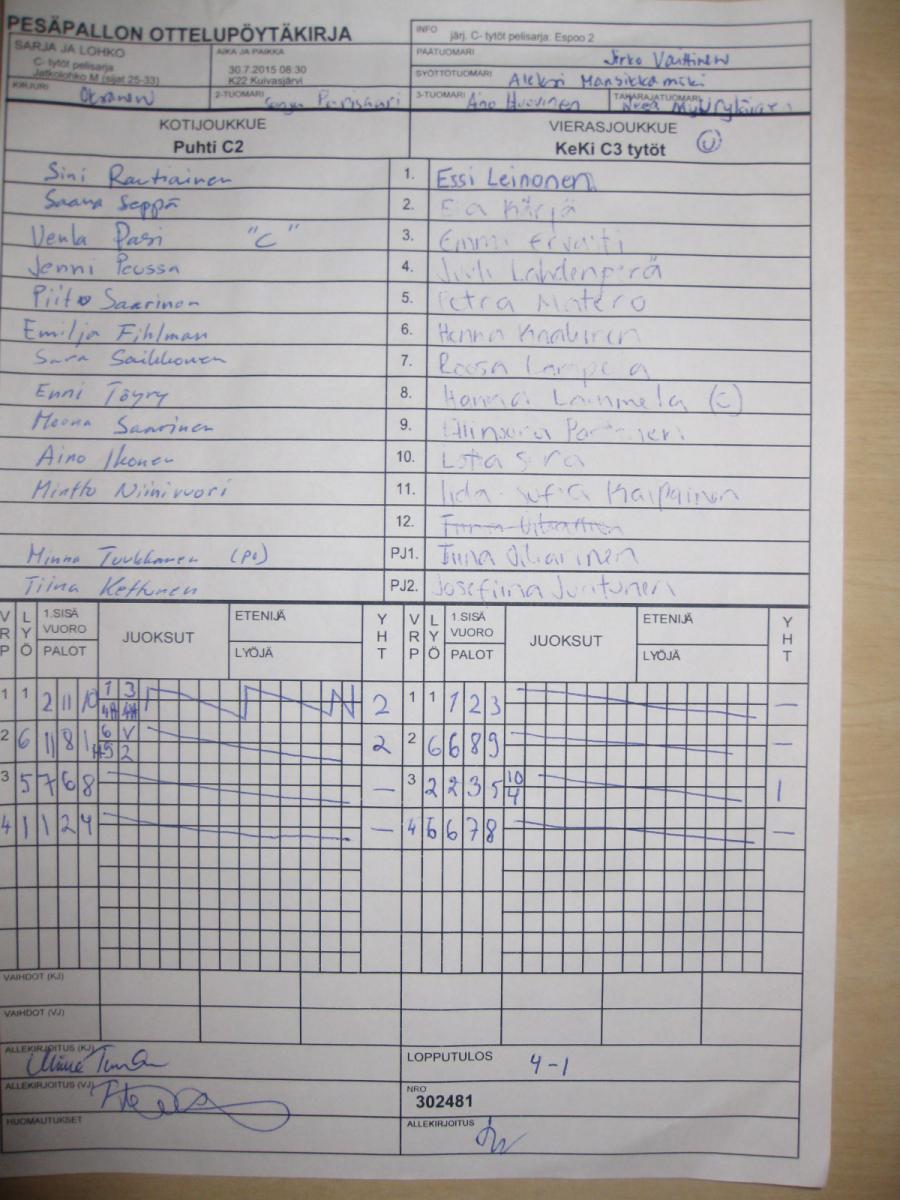 PESÄPALLON OTTELUPÖYTÄKIRJA
INFO järj. C- tytöt pelisarja: Espoo 2
SARJA JA LOHKO
C- tytöt pelisarja
Jatkolohko M (sijat 25-33)
AIKA JA PAIKKA
30.7.2015 08:30
K22 Kuivasjärvi
PÄÄTUOMARI
SYÖTTÖTUOMARI Aleksi Mansikkamäki
KIRJURI
2-TUOMARI
3-TUOMARI Aino Huovinen
TAKARAJATUOMARI
KOTIJOUKKUE
Puhti C2
VIERASJOUKKUE
KeKi C3 tytöt
Sini Rautiainen 1. Essi Leinonen
Saana Seppä 2. Kärjä
Venla Pasi "C" 3. Emmi Ervasti
Jenni Peussa 4. Lahdenperä
Saarinen 5. Petra Matero
Emilja Fihlman 6. Henna
Sara Saikkonen 7. Roosa Lampela
Enni Töyry 8. Hanna Lammela (C)
Moona Saarinen 9.
Aino Ikonen 10.
Minttu Niinivuori 11. Iida-Sofia Karpainen
12.
Minna Tuukkanen (PJ) PJ1. Tiina
Tiina Kettunen PJ2. Josefiina Juntunen
VRP LYÖ 1.SISÄ VUORO PALOT JUOKSUT ETENIJÄ LYÖJÄ YHT VRP LYÖ 1.SISÄ VUORO PALOT JUOKSUT ETENIJÄ LYÖJÄ YHT
1 1 2 11 10 1 3 4H 4H 2 1 1 1 2 3 —
2 6 11 8 1 6 V H5 2 2 2 6 6 8 9 —
3 5 7 6 8 — 3 2 2 3 5 10 4 1
4 1 1 2 4 — 4 6 6 7 8 —
VAIHDOT (KJ)
VAIHDOT (VJ)
ALLEKIRJOITUS (KJ)
LOPPUTULOS 4-1
ALLEKIRJOITUS (VJ)
NRO
302481
HUOMAUTUKSET
ALLEKIRJOITUS